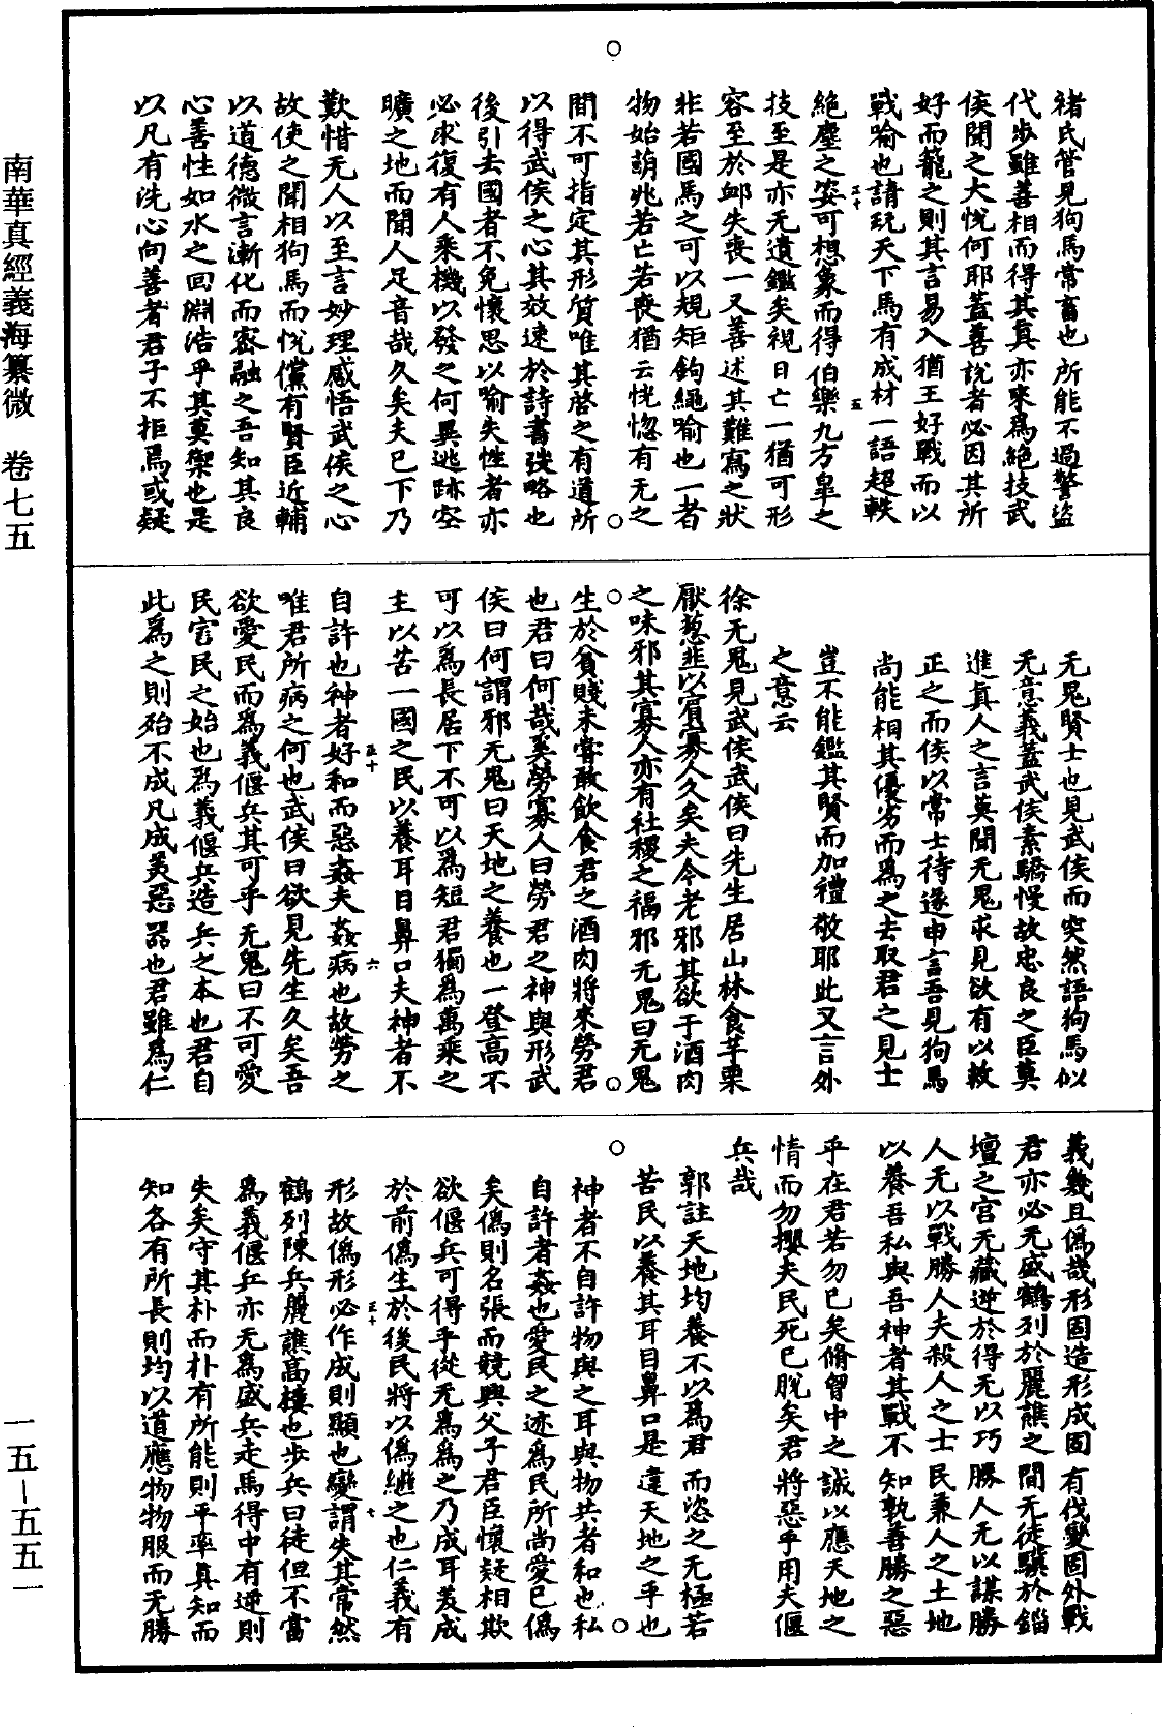 南華真經義海纂微　卷七五
一五—五五一
褚氏管見狗馬常畜也所能不過警盜
代步雖善相而得其真亦來為絕技武
侯聞之大悅何耶蓋善說者必因其所
好而籠之則其言易入猶王好戰而以
戰喻也請玩天下馬有成材一語超軼
絕塵之姿可想象而得伯樂九方臯之
技至是亦无遺鑑矣視日亡一猶可形
容至於䘏失喪一又善述其難寫之狀
非若國馬之可以規矩鉤繩喻也一者
物始萌兆若亡若喪猶云恍惚有无之
間不可指定其形質唯其啓之有道所
以得武侯之心其效速於詩書弢略也
後引去國者不免懷思以喻失性者亦
必求復有人乘機以發之何異逃跡空
曠之地而聞人足音哉久矣夫已下乃
歎惜无人以至言妙理感悟武侯之心
故使之聞相狗馬而悅儻有賢臣近輔
以道德微言漸化而密融之吾知其良
心善性如水之回淵浩乎其莫禦也是
以凡有洗心向善者君子不拒焉或疑
无鬼賢士也見武侯而突然語狗馬似
无意義蓋武侯素驕慢故忠良之臣莫
進真人之言莫聞无鬼求見欲有以救
正之而侯以常士待遂申言吾見狗馬
尚能相其優劣而為之去取君之見士
豈不能鑑其賢而加禮敬耶此又言外
之意云
徐无鬼見武侯武侯曰先生居山林食芧栗
厭葱韭以賓寡人久矣夫今老邪其欲干酒肉
之味邪其寡人亦有社稷之福邪无鬼曰无鬼
生於貧賤未嘗敢飲食君之酒肉將來勞君
也君曰何哉奚勞寡人曰勞君之神與形武
侯曰何謂邪无鬼曰天地之養也一登高不
可以為長居下不可以為短君獨為萬乘之
主以苦一國之民以養耳目鼻口夫神者不
自許也神者好和而惡姦夫姦病也故勞之
唯君所病之何也武侯曰欲見先生久矣吾
欲愛民而為義偃兵其可乎无鬼曰不可愛
民害民之始也為義偃兵造兵之本也君自
此為之則殆不成凡成美惡器也君雖為仁
義幾且偽哉形固造形成固有伐變固外戰
君亦必无盛鶴列於麗譙之間无徒驥於錙
壇之宮无藏逆於得无以巧勝人无以謀勝
人无以戰勝人夫殺人之士民兼人之土地
以養吾私與吾神者其戰不知孰善勝之惡
乎在君若勿已矣脩胷中之誠以應天地之
情而勿攖夫民死已脫矣君將惡乎用夫偃
兵哉
郭註天地均養不以為君而恣之无極若
苦民以養其耳目鼻口是違天地之平也
神者不自許物與之耳與物共者和也私
自許者姦也愛民之迹為民所尚愛已偽
矣偽則名張而競興父子君臣懷疑相欺
欲偃兵可得乎從无為為之乃成耳美成
於前偽生於後民將以偽繼之也仁義有
形故偽形必作成則顯也變謂失其常然
鶴列陳兵麗譙高樓也步兵曰徒但不當
為義偃兵亦无為盛兵走馬得中有逆則
失矣守其朴而朴有所能則平率真知而
知各有所長則均以道應物物服而无勝